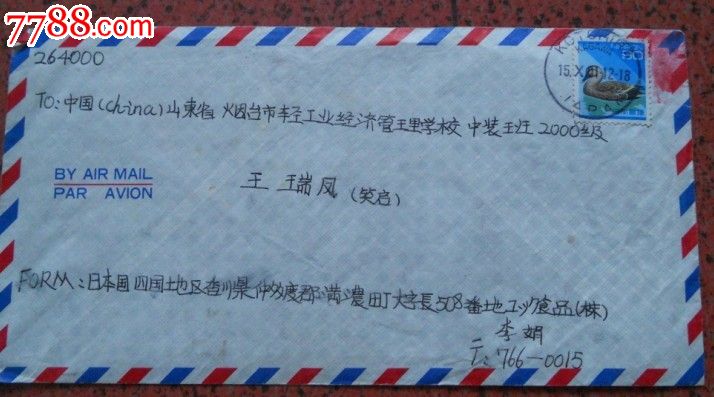 7788.com
264000
TO：中国（China）山東省 烟台市轻工业经济管理学校 中装班 2000级
BY AIR MAIL
PAR AVION
王 瑞凤（笑启）
FORM：日本国四国地区香川県仲多度郡満濃町大字長508番地エック食品(株)
李娟
〒：766-0015
90
15.X.01.12-18
JAPAN